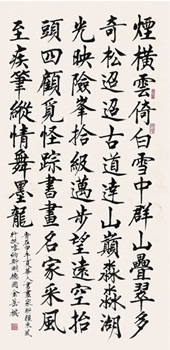 煙橫雲倚白雪中群山疊翠多
奇松迢迢古道山巔淼淼湖
光映險峯拾級邁步望遠空抬
頭四顧覓怪踪書畫名家采風
至疾筆縱情舞墨龍